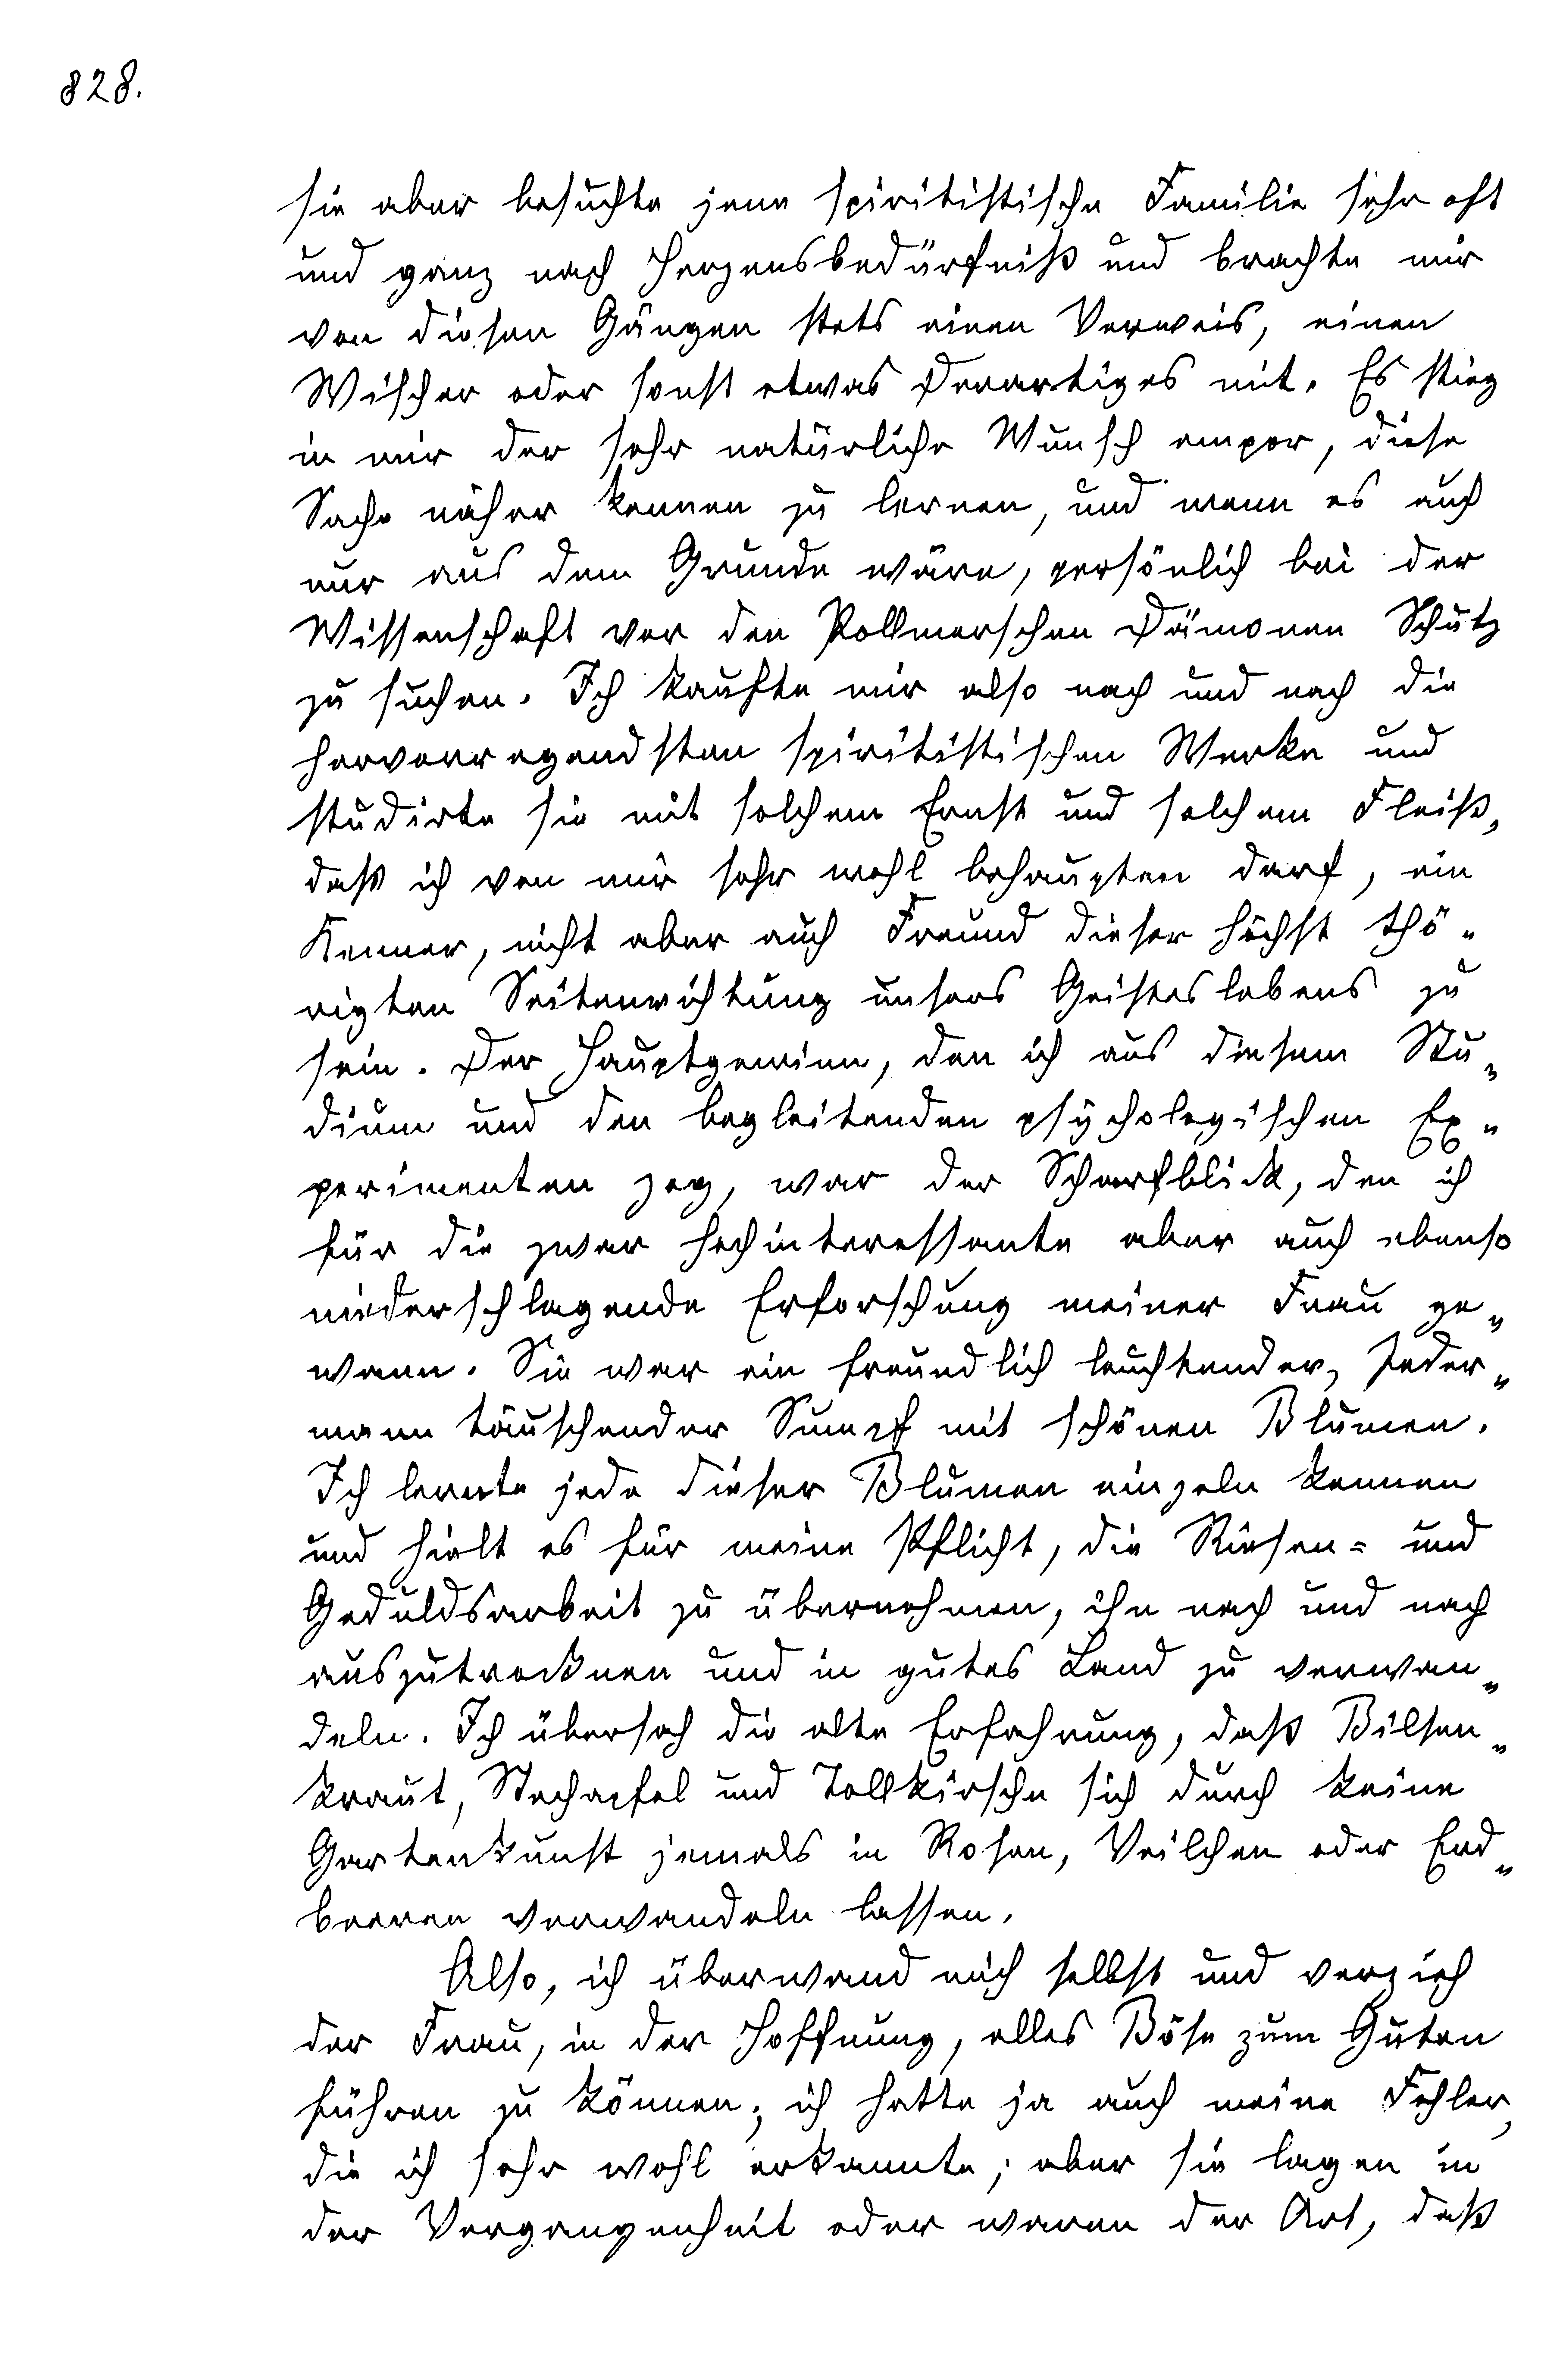 828.
sie aber besuchte jene spiritistische Familie sehr oft
und ganz nach Herzensbedürfniß und brachte mir
von diesen Gängen stets einen Verweis, einen
Wischer oder sonst etwas Derartiges mit. Es stieg
in mir der sehr natürliche Wunsch empor, diese
Sache näher kennen zu lernen, und wenn es auch
nur aus dem Grunde wäre, persönlich bei der
Wissenschaft vor den Pollmerschen Dämonen Schutz
zu suchen. Ich kaufte mir also nach und nach die
hervorragendsten spiritistischen Werke und
studirte sie mit solchem Ernst und solchem Fleiß,
daß ich von mir sehr wohl behaupten darf, ein
Kenner, nicht aber auch Freund dieser höchst thö-
rigten Seitenrichtung unsers Geisteslebens zu
sein. Der Hauptgewinn, den ich aus diesem Stu-
dium und den begleitenden psychologischen Ex-
perimenten zog, war der Scharfblick, den ich
für die zwar hochinteressante aber auch ebenso
niederschlagende Erforschung meiner Frau ge-
wann. Sie war ein freundlich leuchtender, Jeder-
mann täuschender Sumpf mit schönen Blumen.
Ich lernte jede dieser Blumen einzeln kennen
und hielt es für meine Pflicht, die Riesen- und
Geduldsarbeit zu übernehmen, ihn nach und nach
auszutrocknen und in gutes Land zu verwan-
deln. Ich übersah die alte Erfahrung, daß Bilsen-
kraut, Stechapfel und Tollkirsche sich durch keine
Gartenkunst jemals in Rosen, Veilchen oder Erd-
beeren verwandeln lassen.
Also, ich überwand mich selbst und verzieh
der Frau, in der Hoffnung, alles Böse zum Guten
führen zu können; ich hatte ja auch meine Fehler,
die ich sehr wohl erkannte; aber sie lagen in
der Vergangenheit oder waren der Art, daß